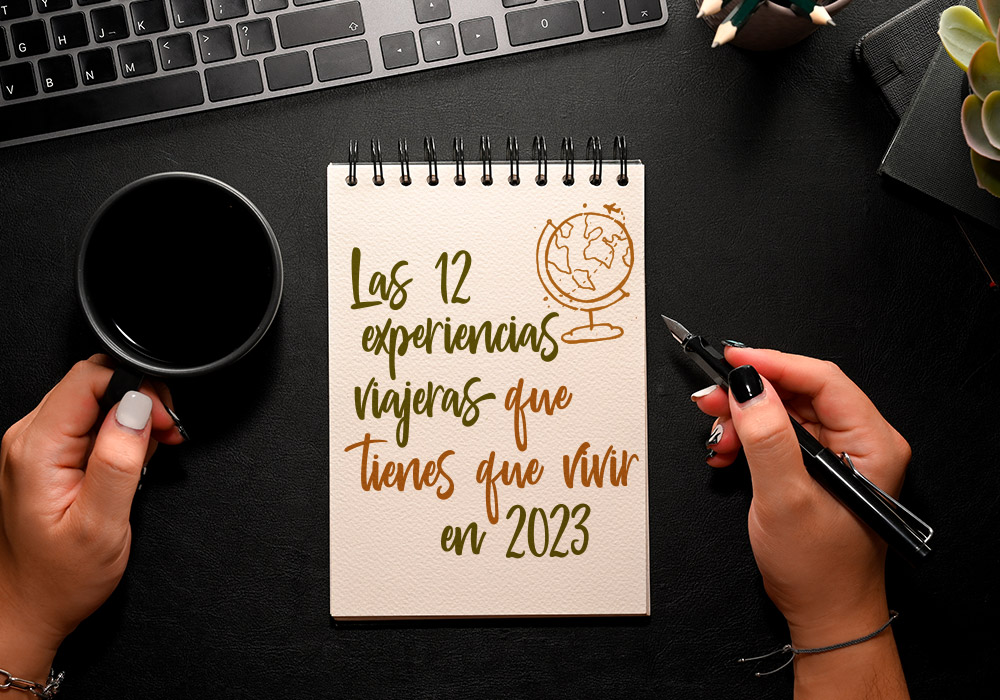 G H J K L ;
V B N M < , > . ? /
0 .
Las 12
experiencias
viajeras que
tienes que vivir
en 2023